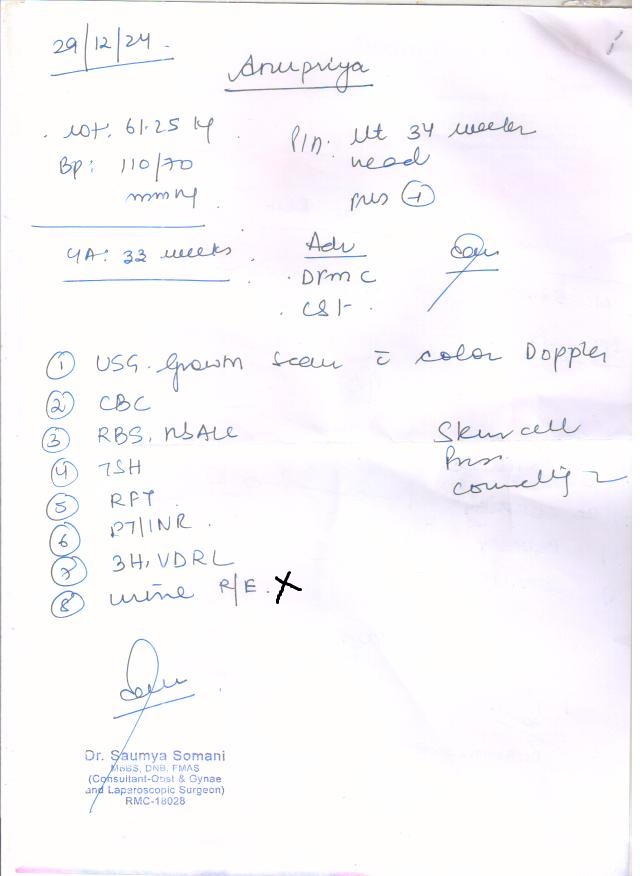 29/12/24.
Anupriya
wt: 61.25 kg
BP: 110/70
mmHg
P/A: Ut 34 weeks
head
pres +
GA: 33 weeks
Adv
DFMC
CST
1 USG. Growth scan c̄ color Doppler
2 CBC
3 RBS,
4 TSH
5 RFT
6 PT/INR
7 3H, VDRL
8 urine R/E. X
Stem cell
counselling
Dr. Saumya Somani
MBBS, DNB, FMAS
(Consultant-Obst & Gynae
and Laparoscopic Surgeon)
RMC-18028